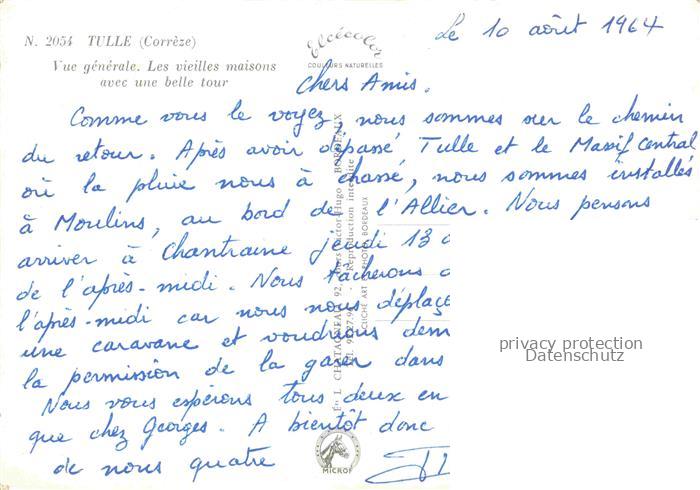 N. 2054 TULLE (Corrèze)
Vue générale. Les vieilles maisons
avec une belle tour
Elcécolor
COULEURS NATURELLES
Le 10 août 1964
Chers Amis.
Comme vous le voyez, nous sommes sur le chemin
du retour. Après avoir dépassé Tulle et le Massif Central
où la pluie nous à chassé, nous sommes installés
à Moulins, au bord de l'Allier. Nous pensons
arriver à Chantraine jeudi 13 a
de l'après-midi. Nous tâcherons d
l'après-midi car nous nous déplaçe
une caravane et voudrions dem
la permission de la garer dans
Nous vous espérons tous deux en
que chez Georges. A bientôt donc
de nous quatre
BORDEAUX
Reproduction interdite
CLICHÉ ART PHOTO BORDEAUX
MICRO
privacy protection
Datenschutz